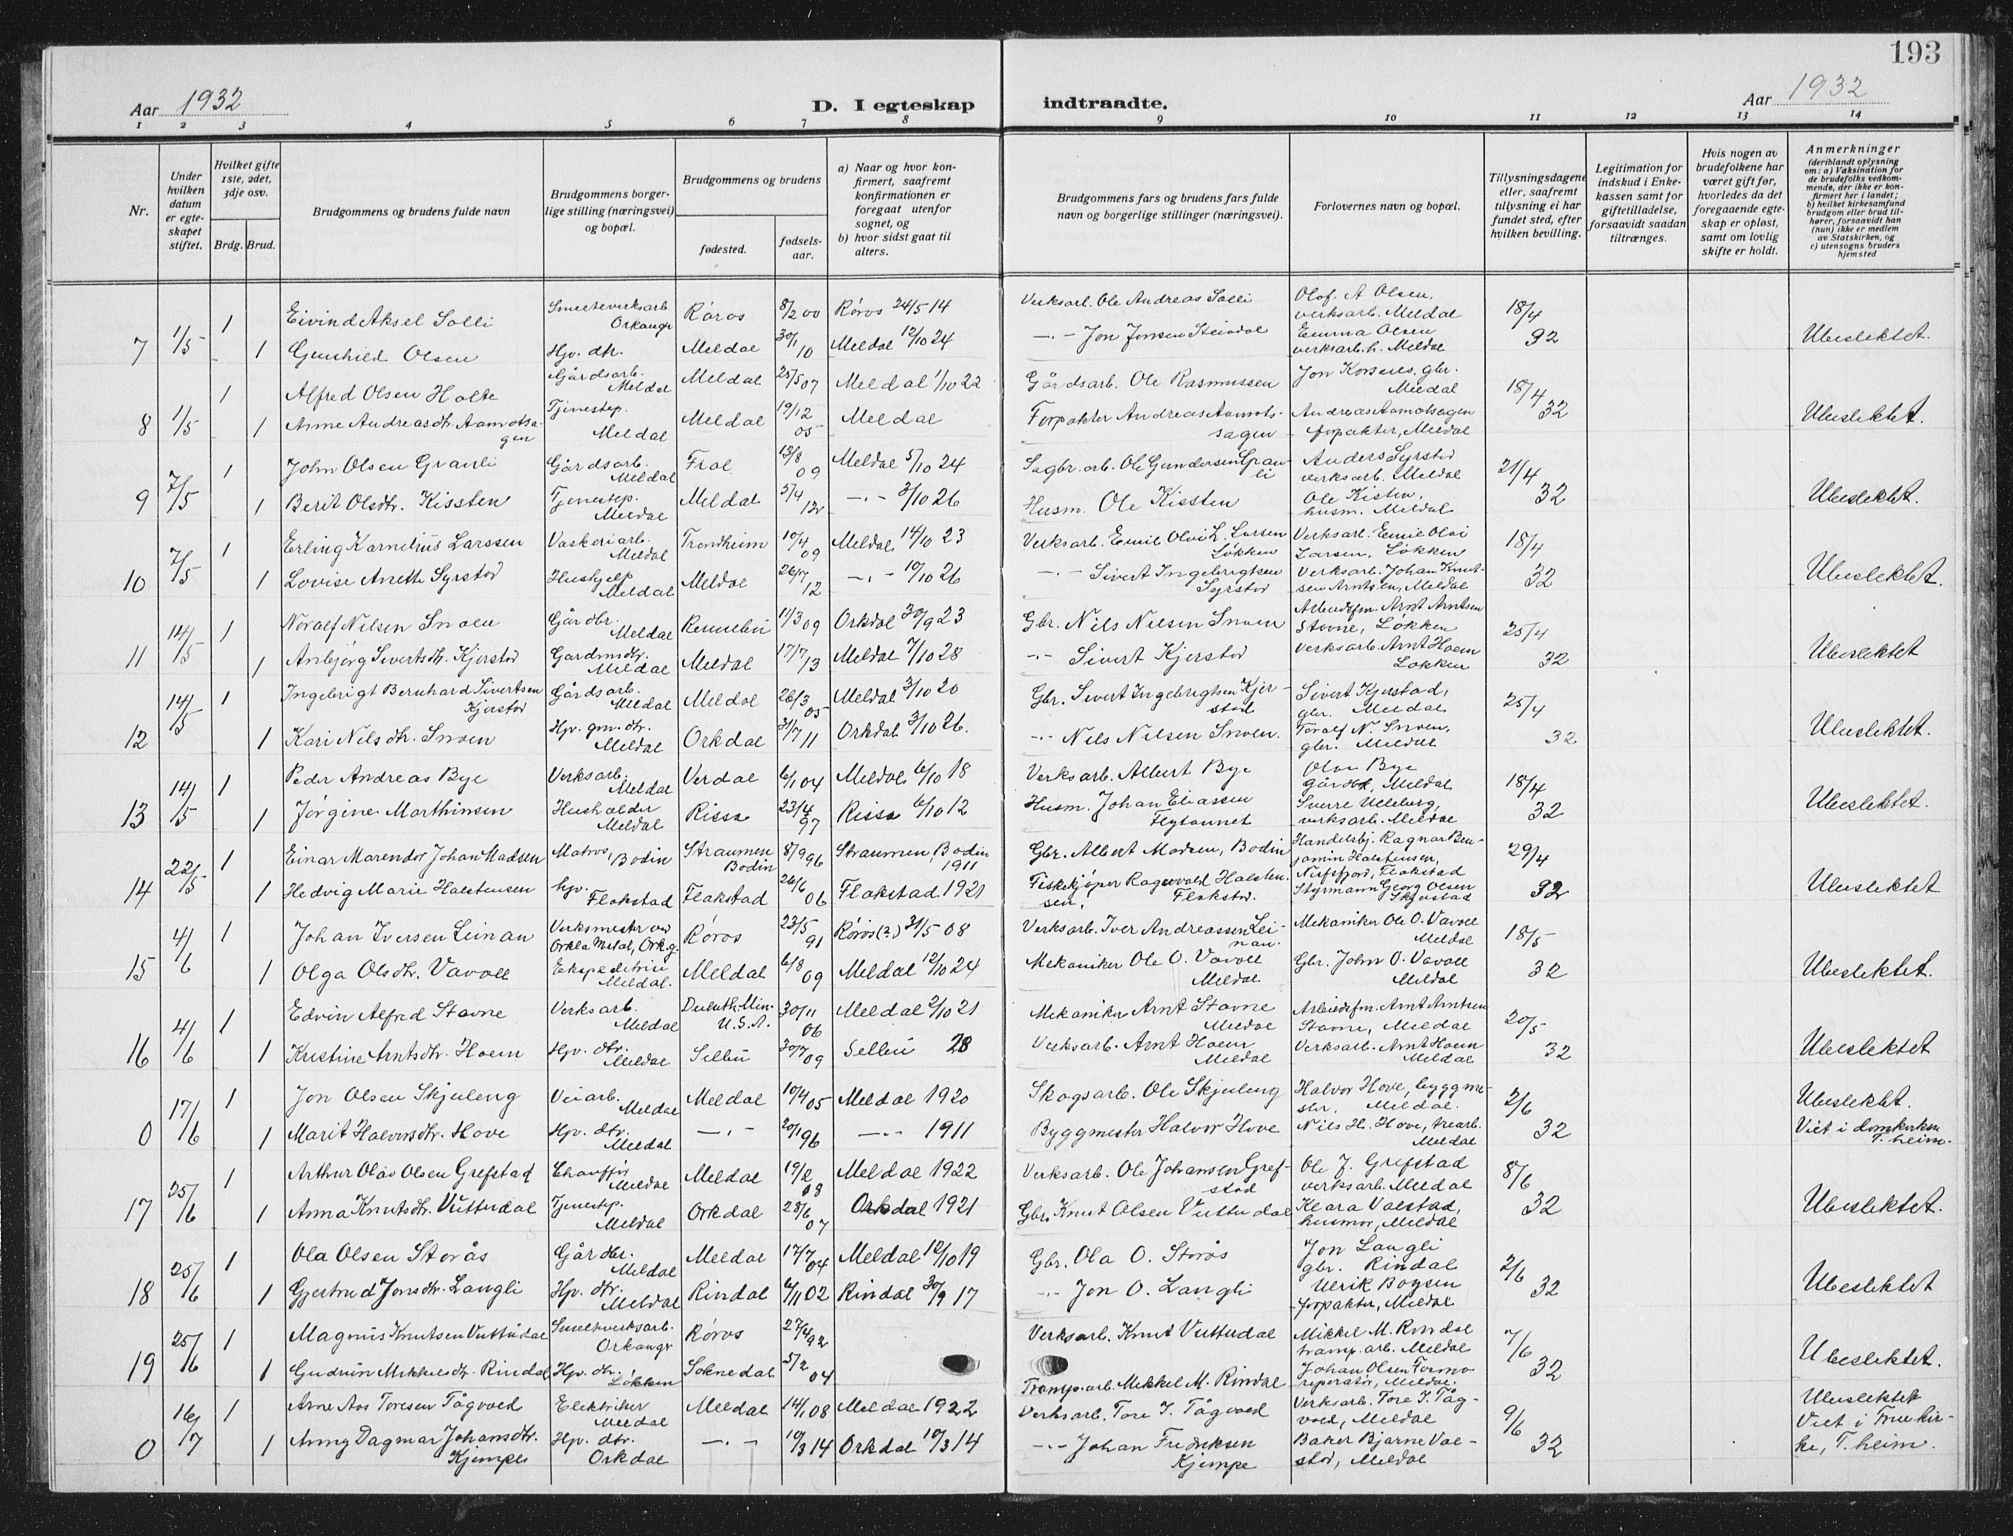 193
Aar 1932
D. I egteskap
indtraadte.
Aar 1932
1 2 3 4 5 6 7 8 9 10 11 12 13 14
Nr.
Under hvilken datum er egteskapet stiftet.
Hvilket gifte 1ste, 2det, 3dje osv.
Brdg. Brud.
Brudgommens og brudens fulde navn
Brudgommens borgerlige stilling (næringsvei) og bopæl.
Brudgommens og brudens
fødested.
fødselsaar.
a) Naar og hvor konfirmert, saafremt konfirmationen er foregaat utenfor sognet, og
b) hvor sidst gaat til alters.
Brudgommens fars og brudens fars fulde navn og borgerlige stillinger (næringsvei).
Forlovernes navn og bopæl.
Tillysningsdagene eller, saafremt tillysning ei har fundet sted, efter hvilken bevilling.
Legitimation for indskud i Enkekassen samt for giftetilladelse, forsaavidt saadan tiltrænges.
Hvis nogen av brudefolkene har været gift før, hvorledes da det foregaaende egteskap er opløst, samt om lovlig skifte er holdt.
Anmerkninger
(deriblandt oplysning om: a) Vaksination for de brudefolks vedkommende, der ikke er konfirmert her i landet; b) hvilket kirkesamfund brudgom eller brud tilhører, forsaavidt han (hun) ikke er medlem av Statskirken, og c) utensogns bruders hjemsted
7 1/5 1 Eivind Aksel Solli Smelteverksarb. Orkangr Røros 8/2 00 Røros 24/5 14 Verksarb. Ole Andreas Solli Olof. A Olsen, verksarb. Meldal 18/4
1 Gunhild Olsen Hpv. dtr. Meldal 30/1 10 Meldal 12/10 24 -"- Jon Jonsen Steindal Emma Olsen verksarb.h. Meldal 32 Ubeslektet.
8 1/5 1 Alfred Olsen Holte Gårdsarb. Meldal Meldal 25/5 07 Meldal 1/10 22 Gårdsarb. Ole Rasmussen Jon Korsnes, gbr. Meldal 18/4
1 Anne Andreasdtr. Aamotsagen Tjenestep. Meldal Meldal 19/12 05 Meldal Forpakter Andreas Aamotssagen Andreas Aamotsagen forpakter, Meldal 32 Ubeslektet.
9 7/5 1 John Olsen Granli Gårdsarb. Meldal Frol 13/8 09 Meldal 5/10 24 Sagbr. arb. Ole Gundersen Granli Anders Syrstad verksarb. Meldal 21/4
1 Berit Olsdtr. Kissten Tjenestep. Meldal Meldal 5/4 12 -"- 3/10 26 Husm. Ole Kissten Ole Kisten, husm. Meldal 32 Ubeslektet.
10 7/5 1 Erling Kornelius Larssen Vaskeriarb. Meldal Trondheim 10/4 09 Meldal 14/10 23 Verksarb. Emil Olvi L. Larsen Løkken Verksarb. Emil Olvi Larsen, Løkken 18/4
1 Lovise Anette Syrstad Hushjelp Meldal Meldal 26/7 12 -"- 10/10 26 -"- Sivert Ingebrigtsen Syrstad Verksarb. Johan Knutsen Arntsen, Meldal 32 Ubeslektet.
11 14/5 1 Noralf Nilsen Snoen Gårdbr. Meldal Rennebu 11/3 09 Orkdal 30/9 23 Gbr. Nils Nilsen Snoen Arbeidsfm. Arnt Arntsen Stavne, Løkken 25/4
1 Anbjørg Sivertsdtr. Kjerstad Gardmdtr. Meldal Meldal 17/7 13 Meldal 7/10 28 -"- Sivert Kjerstad Verksarb. Arnt Hoem Løkken 32 Ubeslektet
12 14/5 1 Ingebrigt Bernhard Sivertsen Kjerstad Gårdsarb. Meldal Meldal 26/3 05 Meldal 3/10 20 Gbr. Sivert Ingebrigtsen Kjerstad Sivert Kjerstad, gbr. Meldal 25/4
1 Kari Nilsdtr. Snoen Hpv. gm. dtr. Meldal Orkdal 31/7 11 Orkdal 3/10 26. -"- Nils Nilsen Snoen. Toralf N. Snoen, gbr. Meldal 32 Ubeslektet.
13 14/5 1 Peder Andreas Bye Verksarb. Meldal Verdal 6/1 04 Meldal 6/10 18 Verksarb. Albert Bye Olav Bye gårdbr, Meldal 18/4
1 Jørgine Marthinsen Husholder Meldal Rissa 23/4 97 Rissa 6/10 12 Husm. Johan Eliassen Fløtannet Sverre Ulleberg, verksarb. Meldal 32 Ubeslektet.
14 22/5 1 Einar Marendor Johan Madsen Matros, Bodin Straumen Bodin 8/9 96 Straumen, Bodin 1911 Gbr. Albert Madsen, Bodin Handelsbj. Ragnar Benjamin Halstensen, Nufsfjord, Flakstad 29/4
1 Hedvig Marie Halstensen hpv. Flakstad Flakstad 26/6 06 Flakstad 1921 Fiskekjøper Ragnvald Halstensen, Flakstad. Styrmann Georg Olsen Skjerstad 32 Ubeslektet
15 4/6 1 Johan Iversen Leinan Verksmester ved Orkla Metal, Ork.g. Røros 23/5 91 Røros(?) 31/5 08 Verksarb. Iver Andreassen Leinan. Mekaniker Ole O. Vavoll Meldal 18/5
1 Olga Olsdtr. Vavoll Ekspeditrise Meldal. Meldal 6/8 09 Meldal 12/10 24 Mekaniker Ole O. Vavoll Meldal Gbr. John O. Vavoll Meldal 32 Ubeslektet.
16 4/6 1 Edvin Alfred Stavne Verksarb. Meldal Duluth, Min. U.S.A. 30/11 06 Meldal 2/10 21 Mekaniker Arnt Stavne Meldal Arbeidsfm. Arnt Arntsen Stavne, Meldal 20/5
1 Kristine Arntsdtr. Hoem Hpv. dtr. Meldal Selbu 30/7 09 Selbu 28 Verksarb. Arnt Hoem Meldal Verksarb. Arnt Hoem Meldal 32 Ubeslektet
0 17/6 1 Jon Olsen Skjuleng Veiarb. Meldal Meldal 10/4 05 Meldal 1920 Skogsarb. Ole Skjuleng Halvor Hove, byggmestr. Meldal. 2/6 Ubeslektet.
1 Marit Halvorsdtr. Hove Hpv. dtr. Meldal -"- 20/1 96 -"- 1911 Byggmester Halvor Hove Nils H. Hove, trearb. Meldal 32 Viet i domkirken T.heim.
17 25/6 1 Arthur Olas Olsen Grefstad Chauffør Meldal Meldal 19/2 08 Meldal 1922 Verksarb. Ole Johansen Grefstad Ole J. Grefstad verksarb. Meldal 8/6
1 Anna Knutsdtr. Vuttudal Tjenestep. Meldal Orkdal 28/6 07 Orkdal 1921 Gbr. Knut Olsen Vuttudal Klara Valstad, husmor, Meldal 32 Ubeslektet.
18 25/6 1 Ola Olsen Storås Gårdbr. Meldal Meldal 17/7 04 Meldal 12/10 19 Gbr. Ola O. Storås Jon Langli gbr. Rindal 2/6
1 Gjertrud Jonsdtr. Langli Hpv. dtr. Meldal Rindal 6/11 02 Rindal 30/9 17 -"- Jon O. Langli Ulrik Boysen forpakter, Meldal 32 Ubeslektet
19 25/6 1 Magnus Knutsen Vuttudal Smelteverksarb. Orkangr Røros 27/4 92 Verksarb. Knut Vuttudal Mikkel M. Rindal tramp. arb. Meldal 7/6
1 Gudrun Mikkelsdtr. Rindal Hpv. dtr. Løkken Soknedal 5/2 04 Tramp. arb. Mikkel M. Rindal Johan Olsen Formo reparatør, Meldal. 32 Ubeslektet.
0 16/7 1 Arne Aos Toresen Tågvold Elektriker Meldal Meldal 14/1 08 Meldal 1922 Verksarb. Tore J. Tågvold Verksarb. Tore J. Tågvold, Meldal 9/6 Ubeslektet
1 Anny Dagmar Johansdtr. Kjempe Hpv. dtr. Orkdal -"- 10/3 14 Orkdal 10/3 14 -"- Johan Fredriksen Kjempe Baker Bjarne Valstad, Meldal 32 Viet i Fruekirke, T.heim.